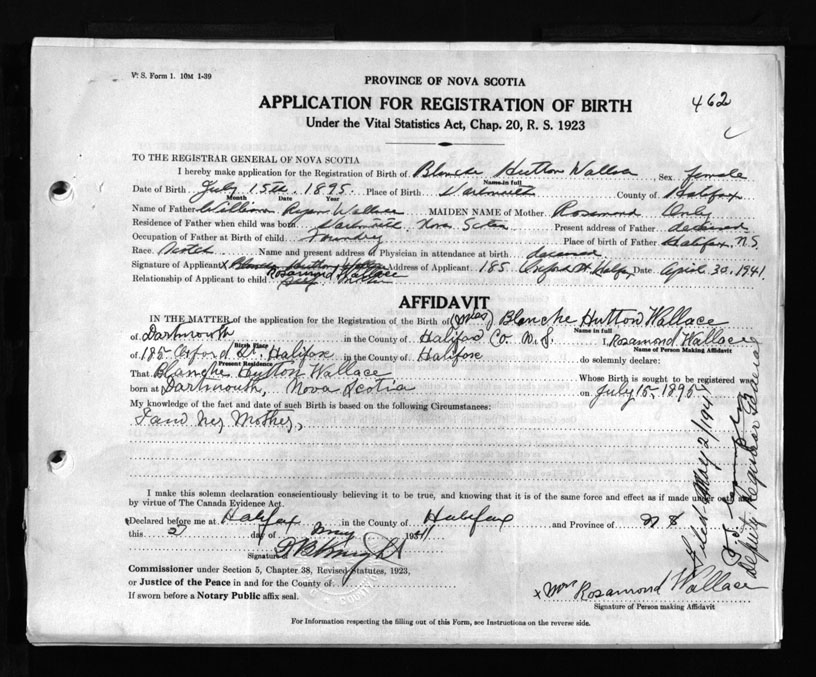 V. S. Form 1. 10M 1-39
PROVINCE OF NOVA SCOTIA
APPLICATION FOR REGISTRATION OF BIRTH
462
Under the Vital Statistics Act, Chap. 20, R. S. 1923
TO THE REGISTRAR GENERAL OF NOVA SCOTIA
I hereby make application for the Registration of Birth of Blanche Hutton Wallace , Sex female
Name in full
Date of Birth July 15th 1895. Place of Birth Dartmouth County of Halifax
Month Date Year
Name of Father William Wallace MAIDEN NAME of Mother Rosamond
Residence of Father when child was born Dartmouth Nova Scotia Present address of Father deceased
Occupation of Father at Birth of child Foundry Place of birth of Father Halifax, N.S.
Race. Scotch Name and present address of Physician in attendance at birth deceased
Signature of Applicant x Blanche Hutton Wallace Rosamond Wallace Address of Applicant 185 Oxford St. Halifax Date April 30, 1941.
Relationship of Applicant to child Self Mother
AFFIDAVIT
IN THE MATTER of the application for the Registration of the Birth of (Miss) Blanche Hutton Wallace
Name in full
of Dartmouth in the County of Halifax Co N.S. I, Rosamond Wallace
Birth Place Name of Person Making Affidavit
of 185 Oxford St. Halifax in the County of Halifax do solemnly declare:
Present Residence
That Blanche Hutton Wallace Whose Birth is sought to be registered was
born at Dartmouth, Nova Scotia on July 15-1895
My knowledge of the fact and date of such Birth is based on the following Circumstances:
I am her Mother,
I make this solemn declaration conscientiously believing it to be true, and knowing that it is of the same force and effect as if made under oath and
by virtue of The Canada Evidence Act.
Declared before me at Halifax in the County of Halifax and Province of N S
this 2 day of May 1941
Signature of
Commissioner under Section 5, Chapter 38, Revised Statutes, 1923,
or Justice of the Peace in and for the County of
If sworn before a Notary Public affix seal.
x Mrs Rosamond Wallace
Signature of Person making Affidavit
For Information respecting the filling out of this Form, see Instructions on the reverse side.
Filed May 2/1941
Deputy Registrar General